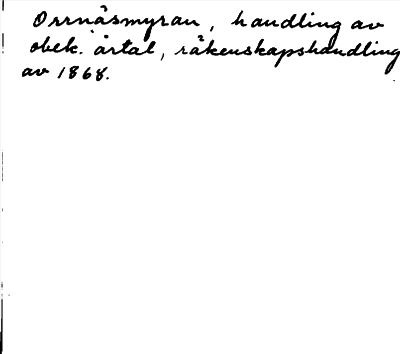 Orrnäsmyran, handling av
obek. årtal, räkenskapshandling
av 1868.